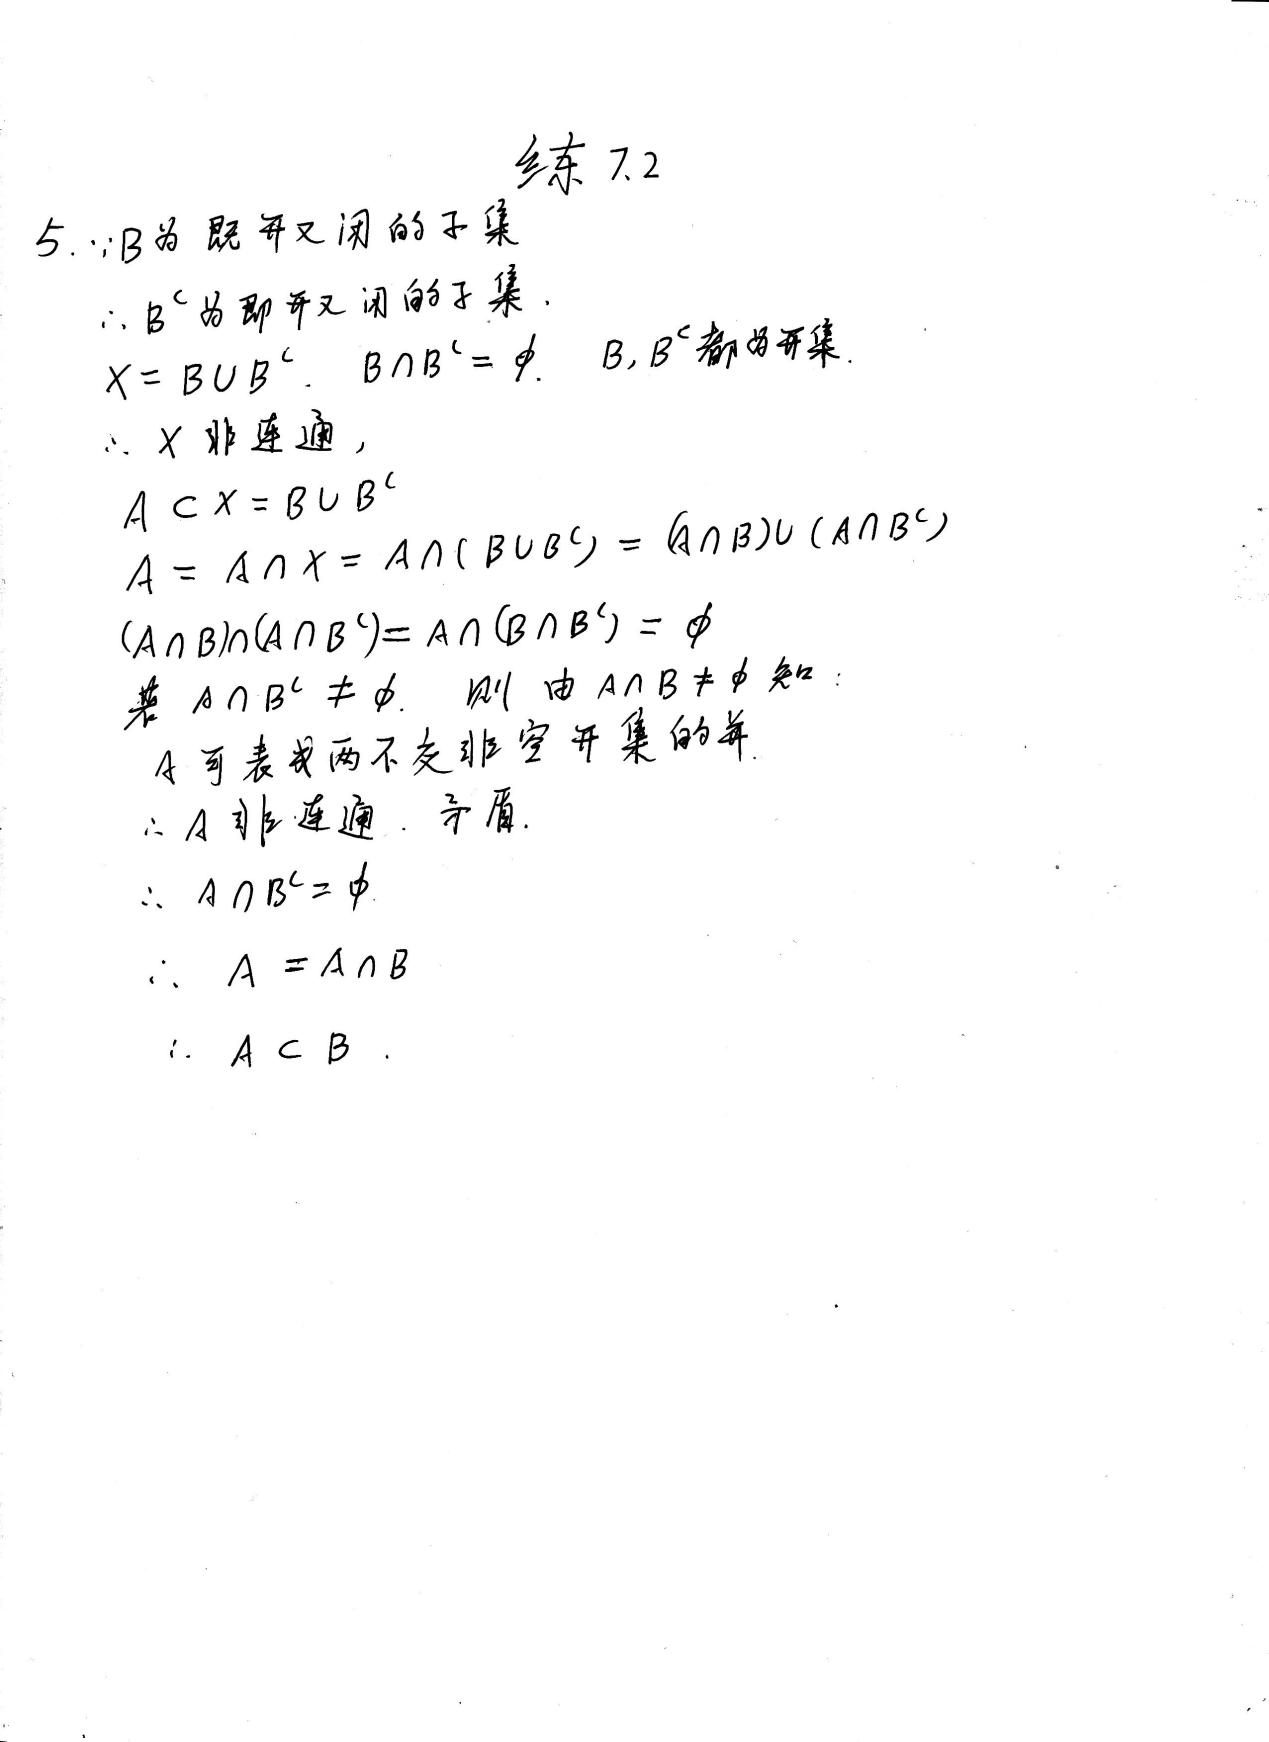 练 7.2
5. ∵B为既开又闭的子集
∴ Bᶜ为即开又闭的子集.
X = B∪Bᶜ. B∩Bᶜ = ϕ. B, Bᶜ都为开集.
∴ X 非连通,
A ⊂ X = B∪Bᶜ
A = A∩X = A∩(B∪Bᶜ) = (A∩B)∪(A∩Bᶜ)
(A∩B)∩(A∩Bᶜ) = A∩(B∩Bᶜ) = ϕ
若 A∩Bᶜ ≠ ϕ. 则由 A∩B ≠ ϕ 知:
A可表成两不交非空开集的并.
∴ A非连通. 矛盾.
∴ A∩Bᶜ = ϕ.
∴ A = A∩B
∴ A ⊂ B.